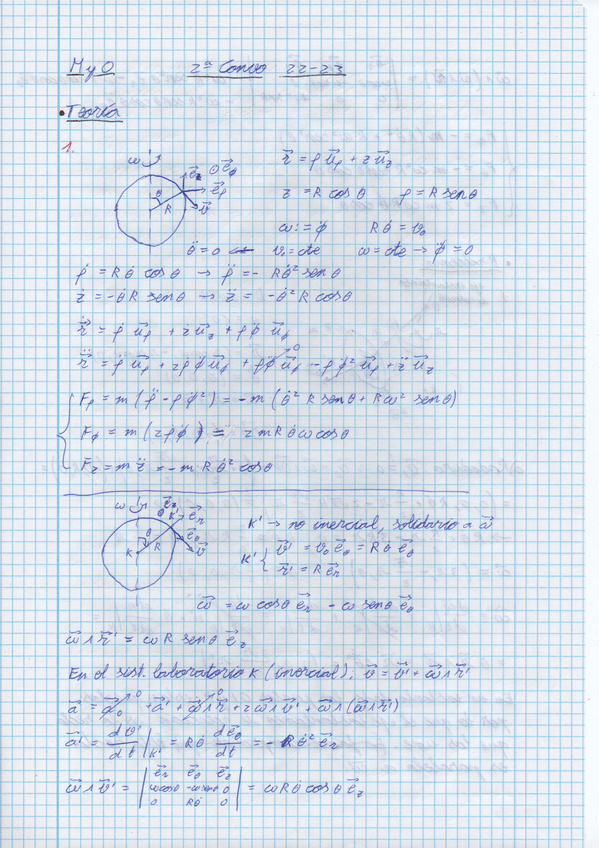 MyO 2ª Convo 22-23
• Teoría
1.
ω e⃗z ⊙ e⃗φ
θ R e⃗ρ v⃗
r⃗ = ρ u⃗ρ + z u⃗z
z = R cos θ ρ = R sen θ
ω := φ̇ Rθ̇ = v₀
θ̈ = 0 ← v₀ = cte ω = cte → φ̈ = 0
ρ̇ = Rθ̇ cos θ → ρ̈ = - Rθ̇² sen θ
ż = -θ̇R sen θ → z̈ = -θ̇² R cos θ
r⃗̇ = ρ̇ u⃗ρ + ż u⃗z + ρφ̇ u⃗φ
r⃗̈ = ρ̈ u⃗ρ + 2ρ̇φ̇ u⃗φ + ρφ̈ u⃗φ 0 - ρφ̇² u⃗ρ + z̈ u⃗z
Fρ = m (ρ̈ - ρφ̇²) = -m (θ̇² R sen θ + Rω² sen θ)
Fφ = m (2ρ̇φ̇) = 2mRθ̇ω cos θ
Fz = m z̈ = -m Rθ̇² cos θ
ω K' e⃗r
K θ R e⃗θ v⃗
K' → no inercial, solidario a ω⃗
K' { v⃗' = v₀ e⃗θ = Rθ̇ e⃗θ
r⃗' = R e⃗r
ω⃗ = ω cos θ e⃗r - ω sen θ e⃗θ
ω⃗ ∧ r⃗' = ωR sen θ e⃗z
En el sist. laboratorio K (inercial), v⃗ = v⃗' + ω⃗ ∧ r⃗'
a⃗ = a⃗₀ 0 + a⃗' + ω⃗̇ ∧ r⃗ 0 + 2ω⃗ ∧ v⃗' + ω⃗ ∧ (ω⃗ ∧ r⃗')
a⃗' = dv⃗'/dt |K' = Rθ̇ de⃗θ/dt = - Rθ̇² e⃗r
ω⃗ ∧ v⃗' = | e⃗r e⃗θ e⃗z |
| ω cos θ -ω sen θ 0 | = ωRθ̇ cos θ e⃗z
| 0 Rθ̇ 0 |